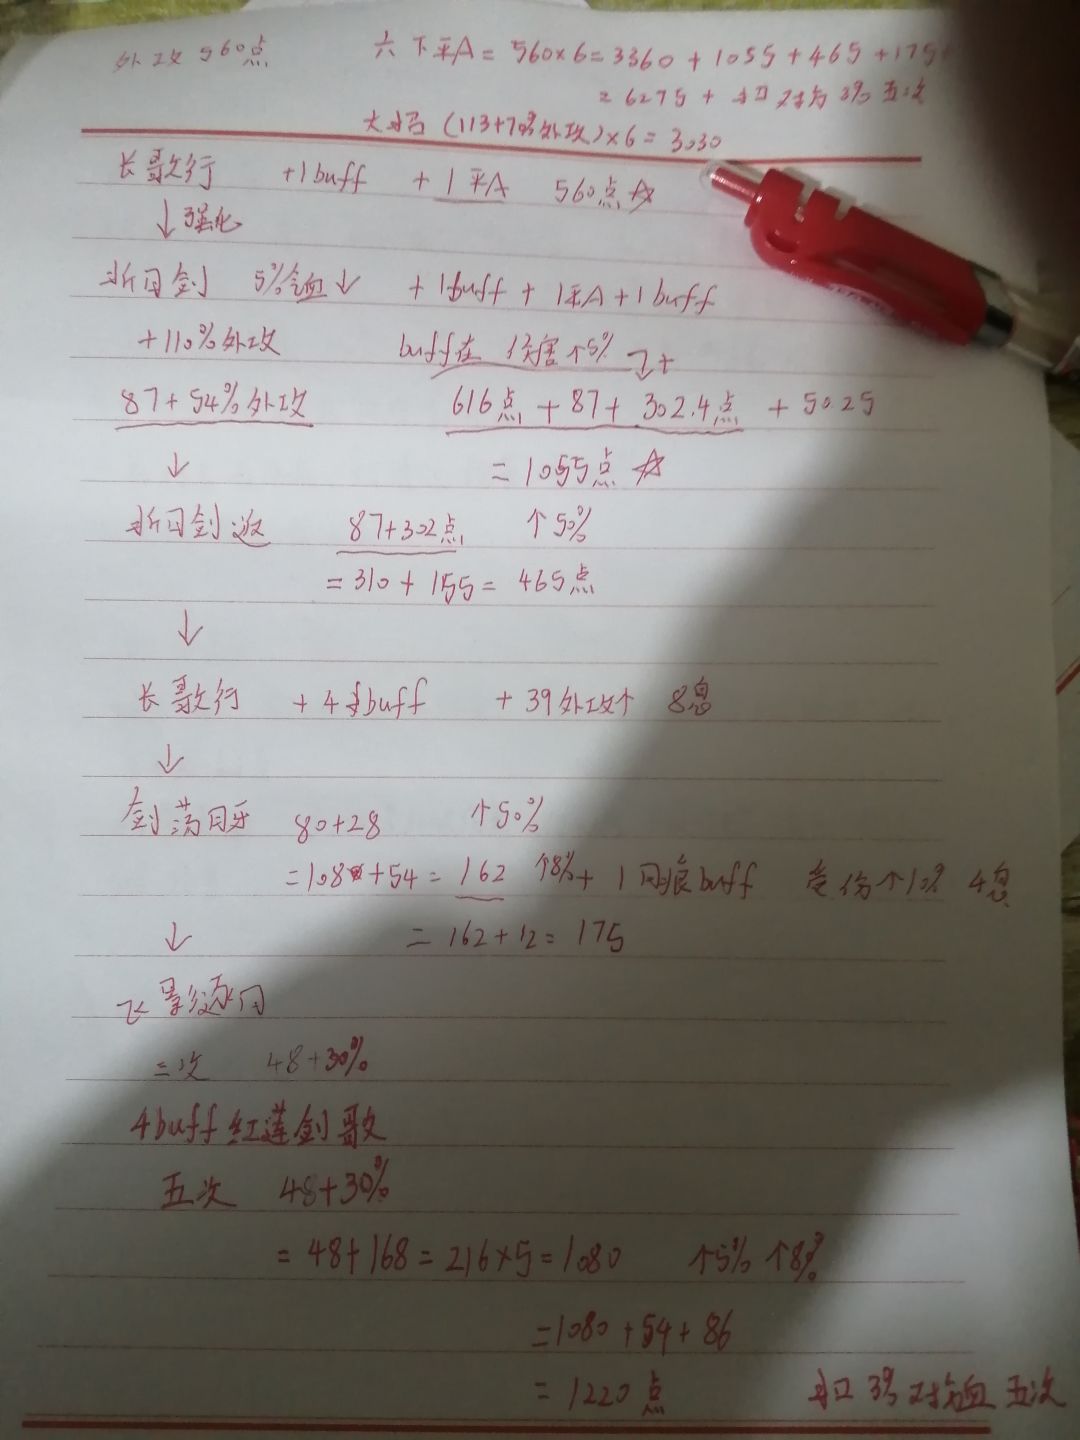 外攻 560点 六下平A = 560×6 = 3360 + 1055 + 465 + 175+
= 6275 + 扣对方 3% 五次
大招 (113+70%外攻)×6 = 3030
长歌行 +1buff + 1平A 560点 ☆
↓强化
斩月剑 5% ↓ + 1buff + 1平A + 1buff
+110%外攻 buff在 伤害↑5% +
87+54%外攻 616点 + 87 + 302.4点 + 50.25
↓ = 1055点 ☆
斩月剑返 87+302点 ↑50%
= 310 + 155 = 465点
↓
长歌行 + 4 buff + 39外攻↑ 8息
↓
剑荡月牙 80+28 ↑50%
=108+54 = 162 ↑8%+ 1月痕buff 受伤↑10% 4息
↓ = 162+12= 175
飞影逐月
三次 48+30%
4buff 红莲剑歌
五次 48+30%
= 48+168 = 216×5 = 1080 ↑5% ↑8%
=1080+54+86
= 1220点 扣 3% 对方血 五次